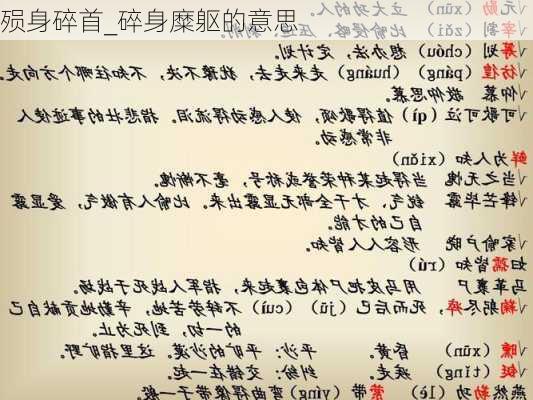 殒身碎首_碎身糜躯的意思
元勋（xūn） 立大功的人。
宰割（zǎi） 比喻侵略、压迫
√筹划（chóu） 想办法，定计划。
√彷徨（páng）（huáng）走来走去，犹豫不决，不知往哪个方向走。
√仰慕 敬仰思慕。
√可歌可泣（qì）值得歌颂，使人感动得流泪。指悲壮的事迹使人
非常感动。
鲜为人知（xiǎn）
√当之无愧 当得起某种荣誉或称号，毫不惭愧。
√锋芒毕露 锐气、才干全部无显露出来。比喻人有傲气，爱显露
自己的才能。
√家喻户晓 形容人人皆知。
妇孺皆知（rú）
马革裹尸 用马皮把尸体包裹起来，指军人战死于战场。
√鞠躬尽瘁，死而后已（jū）（cuì）不辞劳苦地，辛勤地贡献自己
的一切，到死为止。
√曛（xūn） 昏黄。 平沙：平旷的沙漠。这里指旷野。
√铤（tǐng）疾走。 纠纷：交错在一起。
燕然勒功（lè） 萦带（yíng）弯曲得像带子一般。